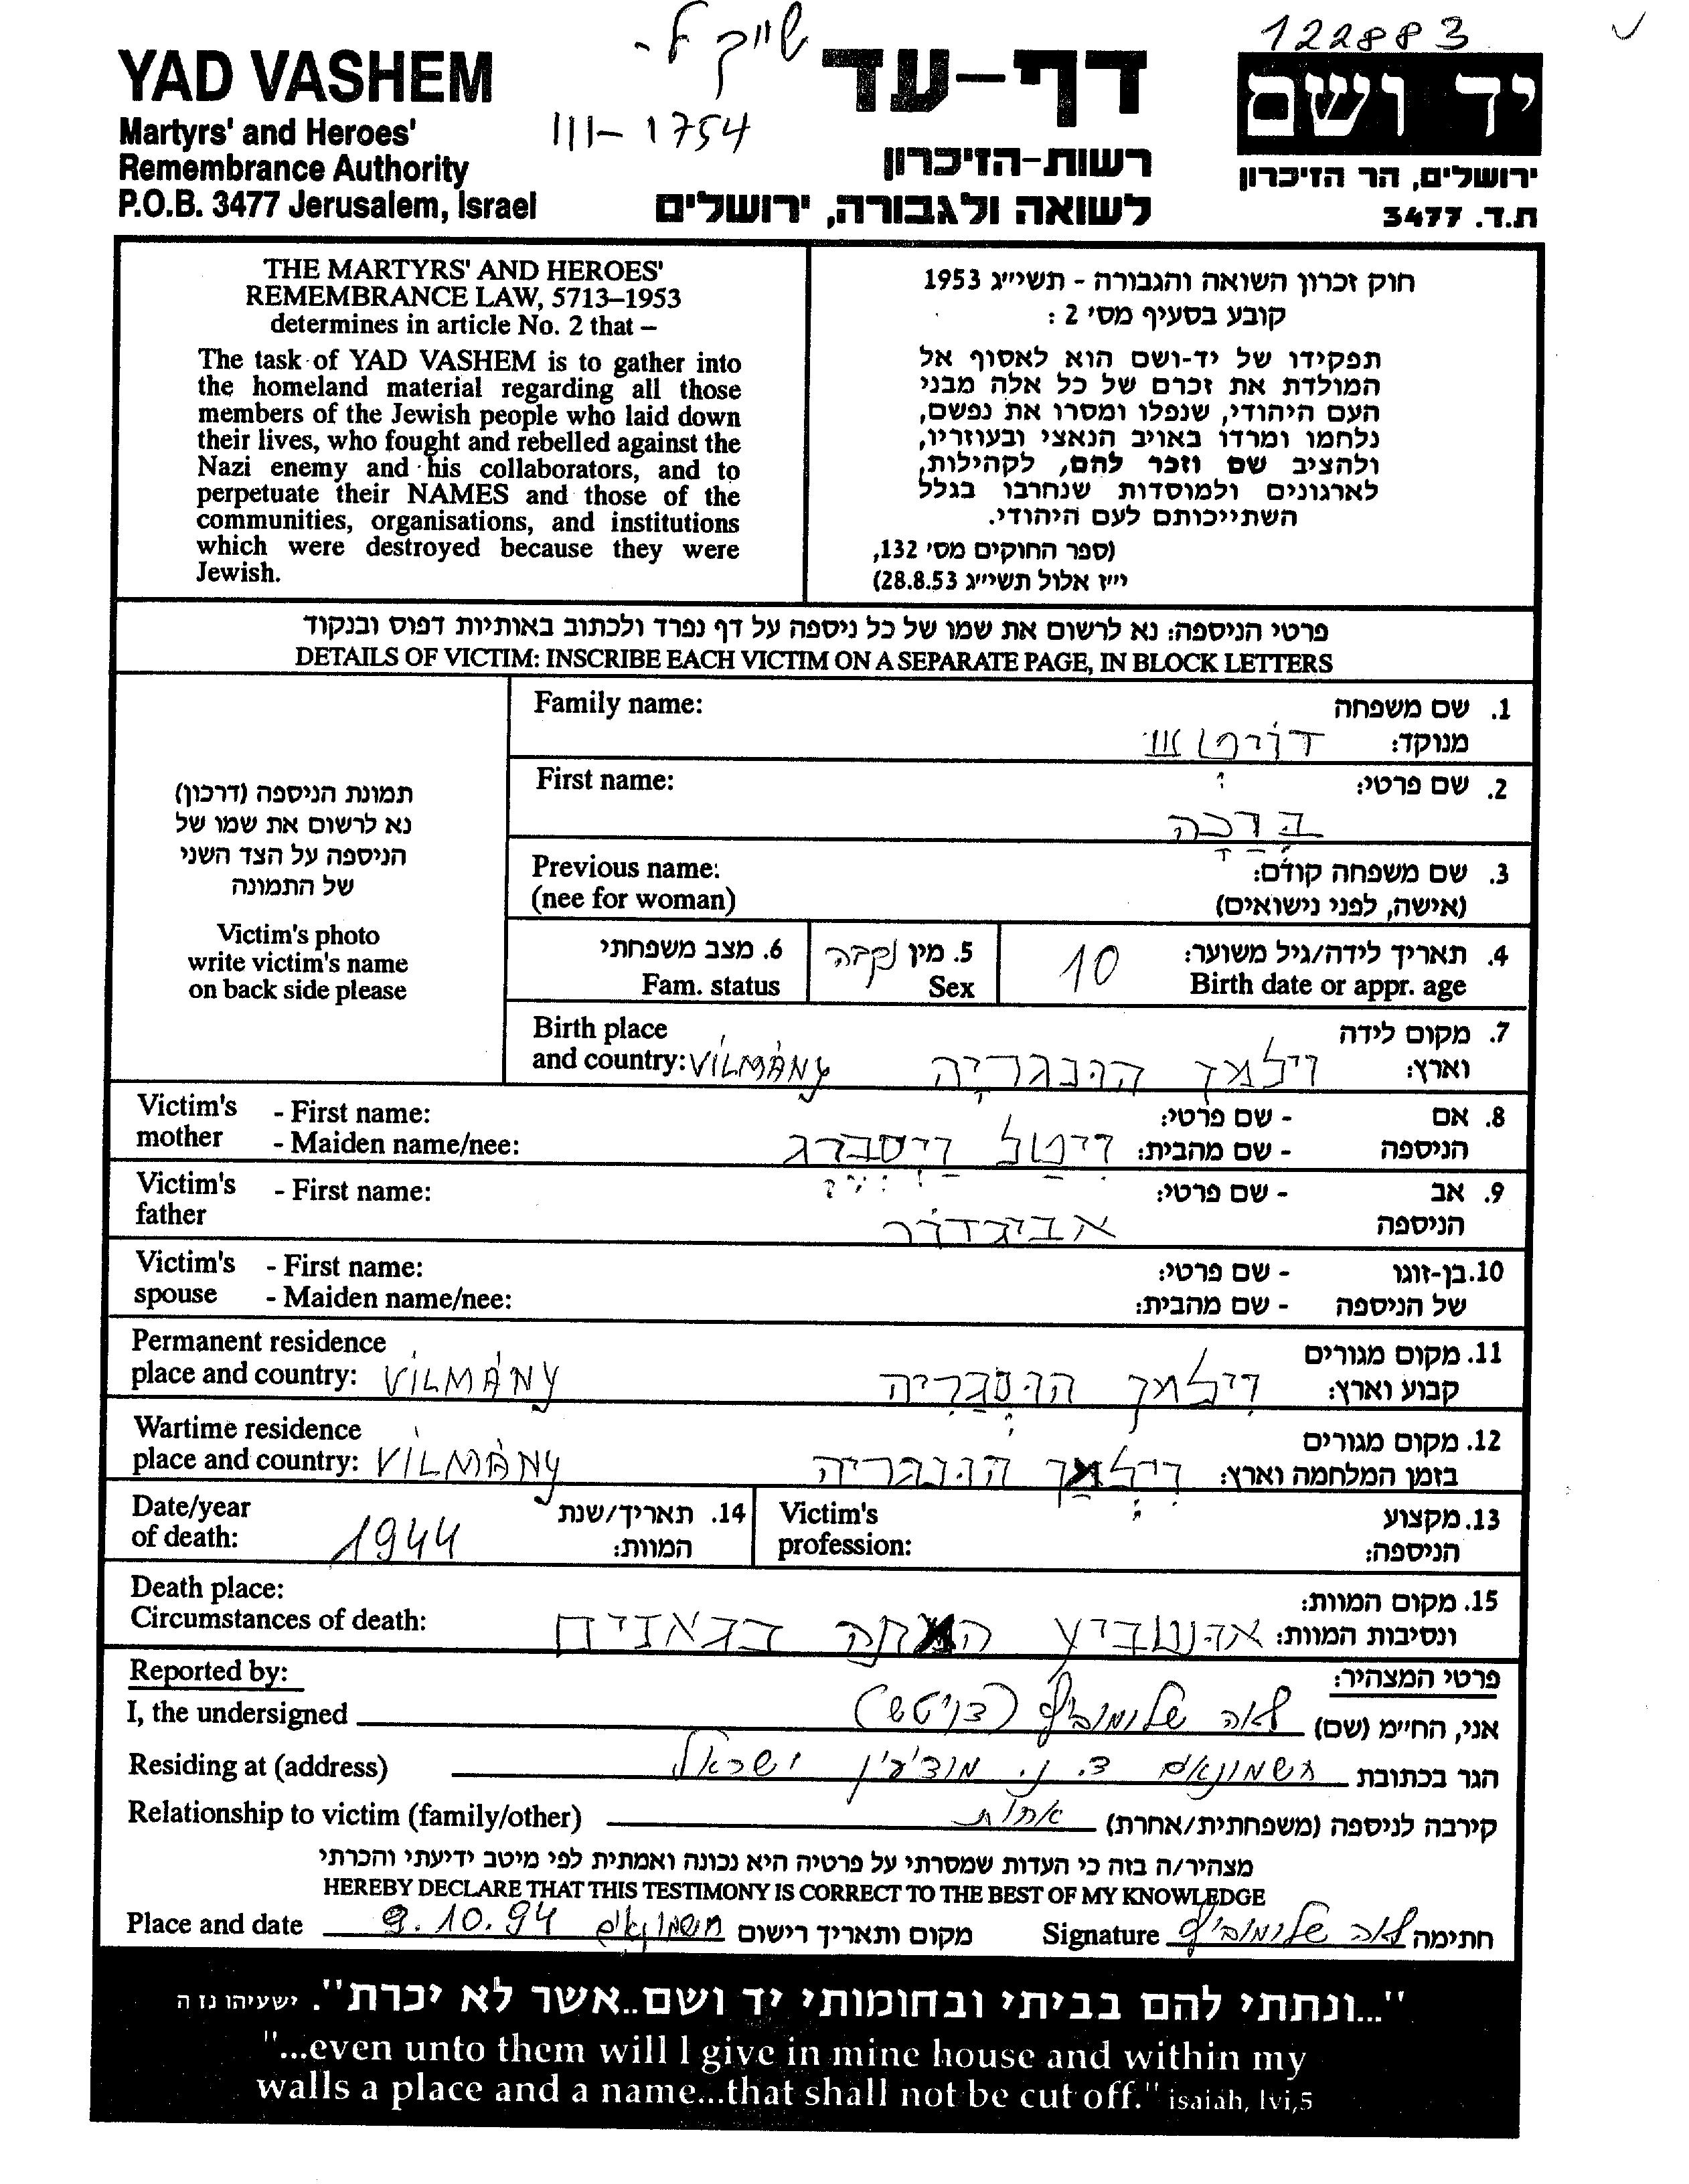 122883
שייך ל-
III- 1754
YAD VASHEM
Martyrs' and Heroes'
Remembrance Authority
P.O.B. 3477 Jerusalem, Israel
דף-עד
רשות-הזיכרון
לשואה ולגבורה, ירושלים
יד ושם
ירושלים, הר הזיכרון
ת.ד. 3477
THE MARTYRS' AND HEROES'
REMEMBRANCE LAW, 5713–1953
determines in article No. 2 that –
The task of YAD VASHEM is to gather into
the homeland material regarding all those
members of the Jewish people who laid down
their lives, who fought and rebelled against the
Nazi enemy and his collaborators, and to
perpetuate their NAMES and those of the
communities, organisations, and institutions
which were destroyed because they were
Jewish.
חוק זכרון השואה והגבורה - תשי״ג 1953
קובע בסעיף מס׳ 2 :
תפקידו של יד-ושם הוא לאסוף אל
המולדת את זכרם של כל אלה מבני
העם היהודי, שנפלו ומסרו את נפשם,
נלחמו ומרדו באויב הנאצי ובעוזריו,
ולהציב שם וזכר להם, לקהילות,
לארגונים ולמוסדות שנחרבו בגלל
השתייכותם לעם היהודי.
(ספר החוקים מס׳ 132,
י״ז אלול תשי״ג 28.8.53)
פרטי הניספה: נא לרשום את שמו של כל ניספה על דף נפרד ולכתוב באותיות דפוס ובנקוד
DETAILS OF VICTIM: INSCRIBE EACH VICTIM ON A SEPARATE PAGE, IN BLOCK LETTERS
תמונת הניספה (דרכון)
נא לרשום את שמו של
הניספה על הצד השני
של התמונה
Victim's photo
write victim's name
on back side please
Family name:
1. שם משפחה
מנוקד:
First name:
2. שם פרטי:
בְּרָכָה
Previous name:
(nee for woman)
3. שם משפחה קודם:
(אישה, לפני נישואים)
4. תאריך לידה/גיל משוער: 10
Birth date or appr. age
5. מין נקבה
Sex
6. מצב משפחתי
Fam. status
Birth place
and country: VILMÁNY
7. מקום לידה
וארץ: וילמן הונגריה
Victim's mother - First name:
- Maiden name/nee:
8. אם הניספה - שם פרטי:
- שם מהבית: ויטל וייסברג
Victim's father - First name:
9. אב הניספה - שם פרטי:
אביגדור
Victim's spouse - First name:
- Maiden name/nee:
10. בן-זוגו של הניספה - שם פרטי:
- שם מהבית:
Permanent residence
place and country: VILMÁNY
11. מקום מגורים
קבוע וארץ: וילמן הונגריה
Wartime residence
place and country: VILMÁNY
12. מקום מגורים
בזמן המלחמה וארץ: וילמן הונגריה
Date/year
of death: 1944
14. תאריך/שנת
המוות:
Victim's
profession:
13. מקצוע
הניספה:
Death place:
Circumstances of death:
15. מקום המוות:
ונסיבות המוות: אושוביץ בגאזים
Reported by:
פרטי המצהיר:
I, the undersigned
אני, הח״מ (שם) לאה שלומוביץ
Residing at (address)
הגר בכתובת חשמונאים ד. נ. מודיעין ישראל
Relationship to victim (family/other)
קירבה לניספה (משפחתית/אחרת) אחות
מצהיר/ה בזה כי העדות שמסרתי על פרטיה היא נכונה ואמתית לפי מיטב ידיעתי והכרתי
HEREBY DECLARE THAT THIS TESTIMONY IS CORRECT TO THE BEST OF MY KNOWLEDGE
Place and date 9.10.94 חשמונאים מקום ותאריך רישום
Signature לאה שלומוביץ חתימה
"...ונתתי להם בביתי ובחומותי יד ושם..אשר לא יכרת". ישעיהו נו ה
"...even unto them will I give in mine house and within my
walls a place and a name...that shall not be cut off." isaiah, lvi,5